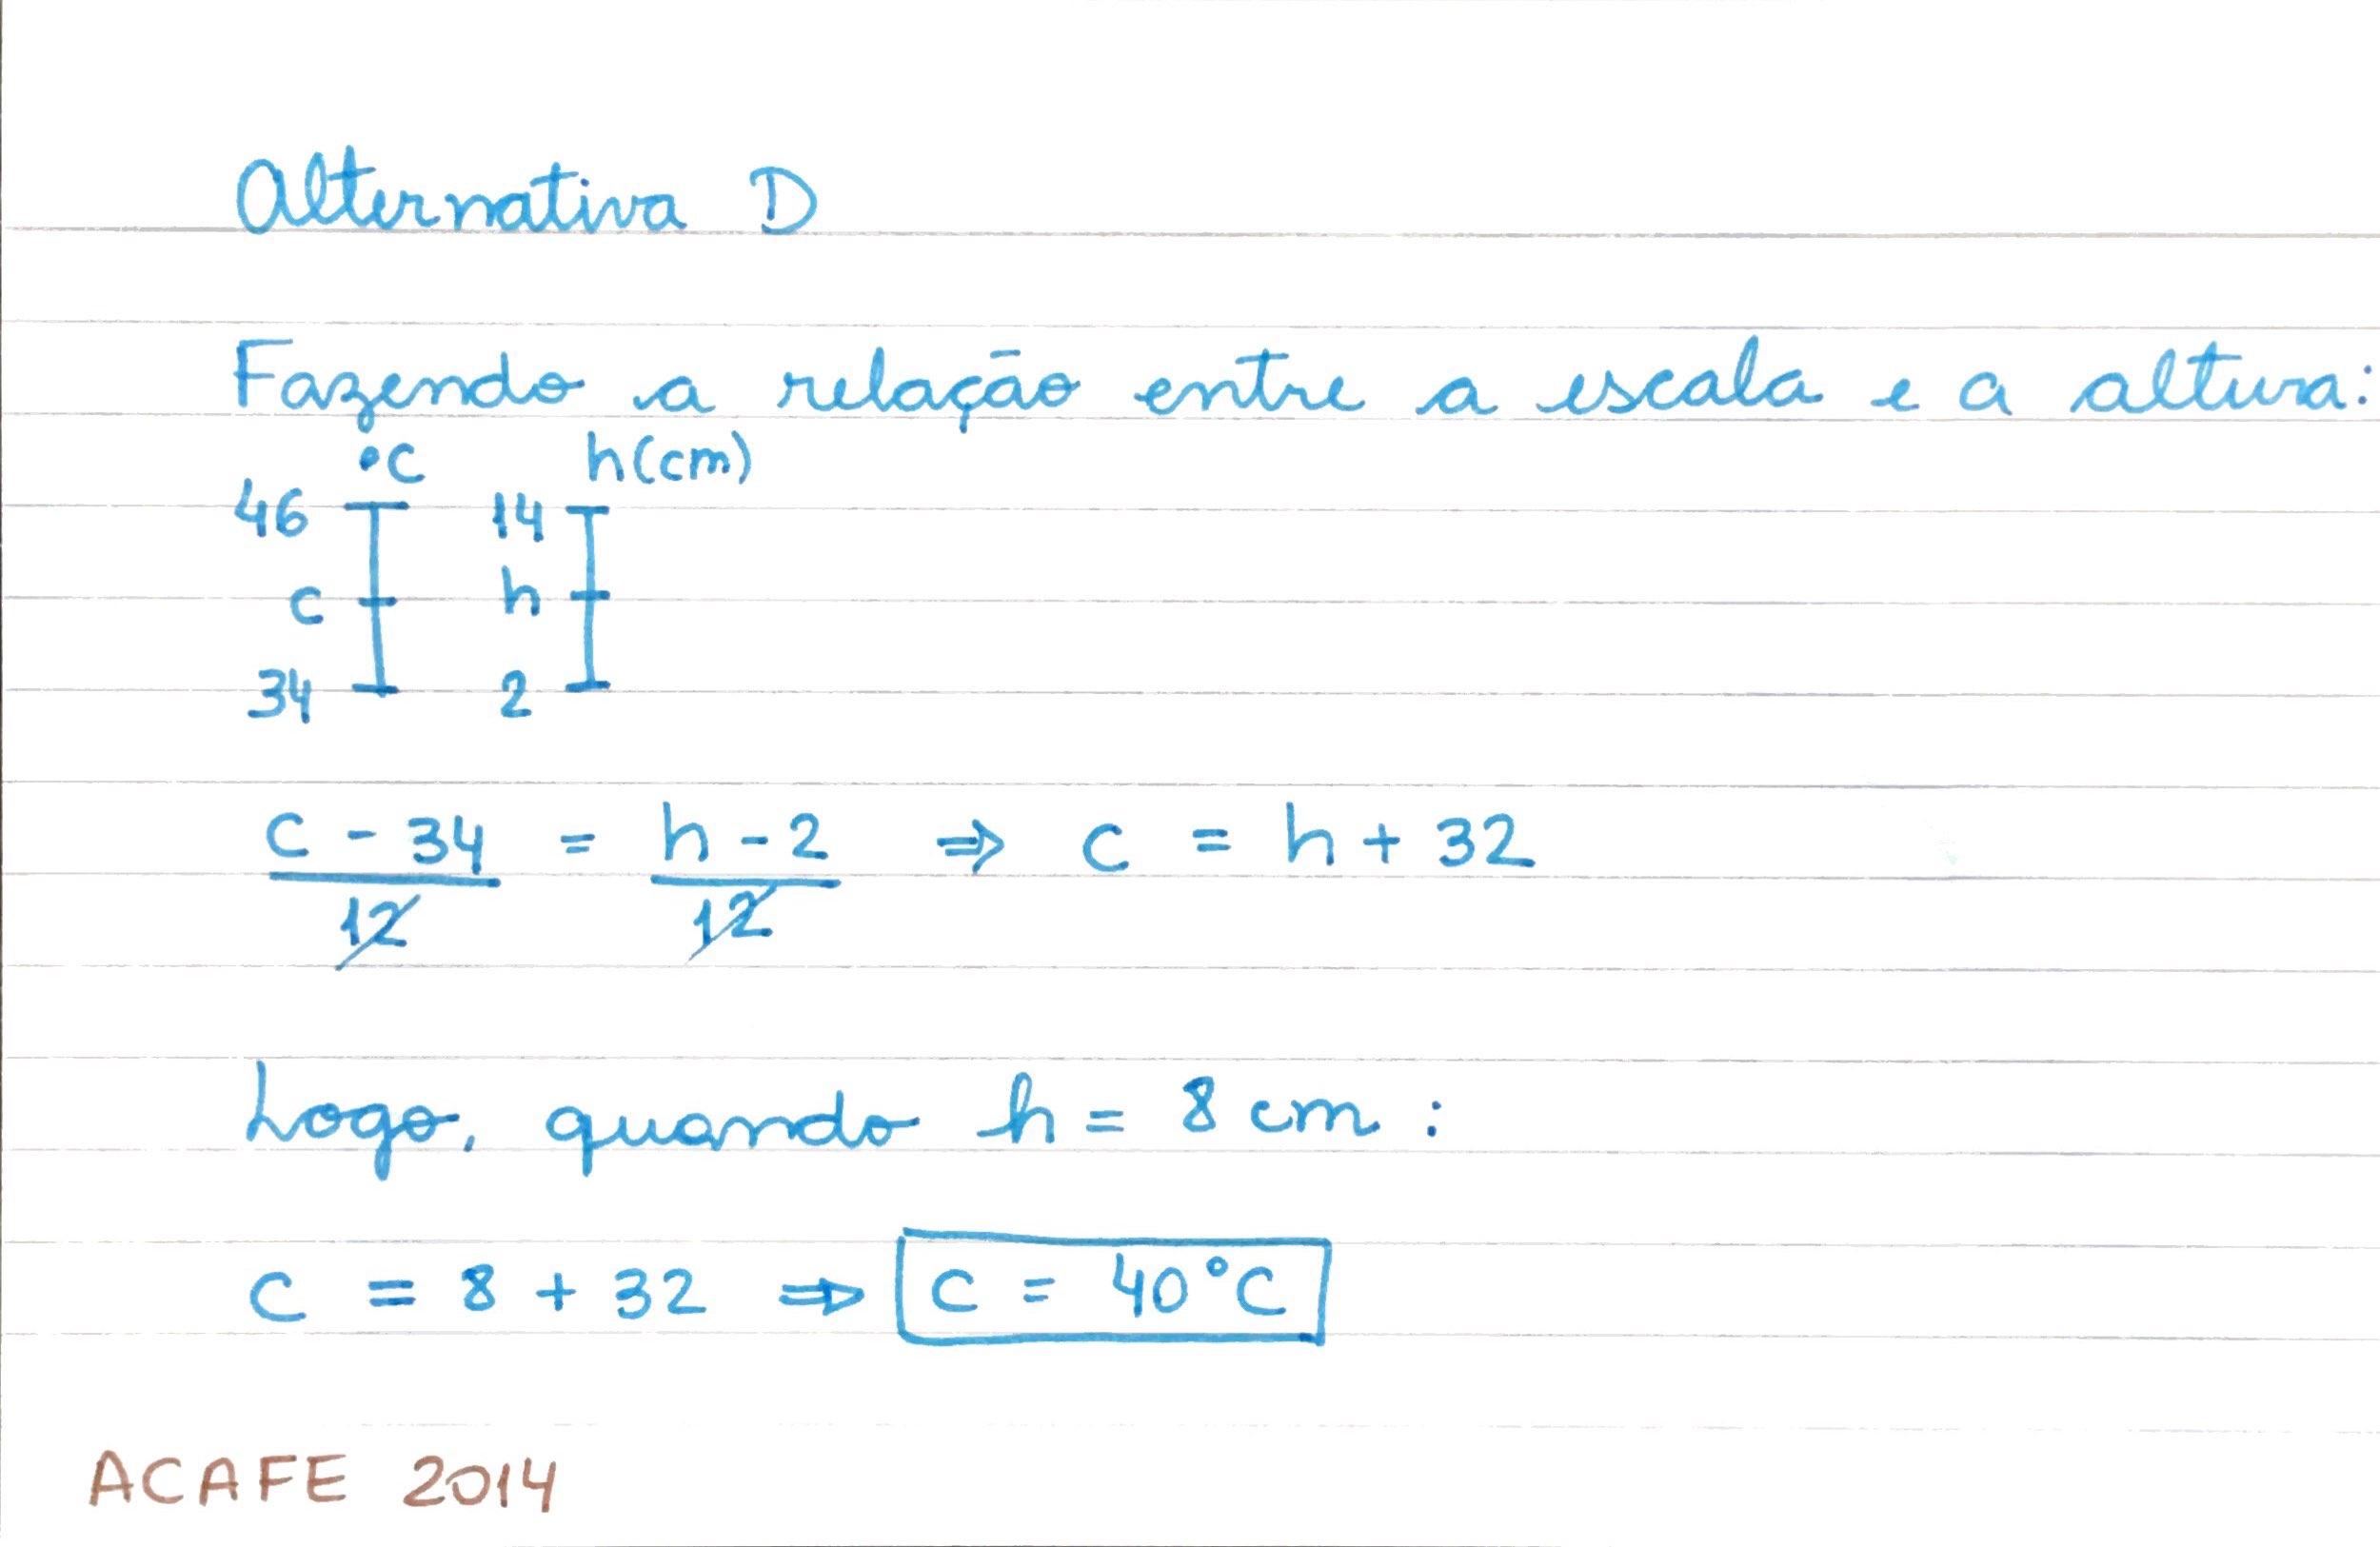 Alternativa D
Fazendo a relação entre a escala e a altura:
°C h(cm)
46 14
c h
34 2
C - 34 = h - 2 ⇒ C = h + 32
12 12
Logo, quando h = 8 cm:
C = 8 + 32 ⇒ C = 40°C
ACAFE 2014